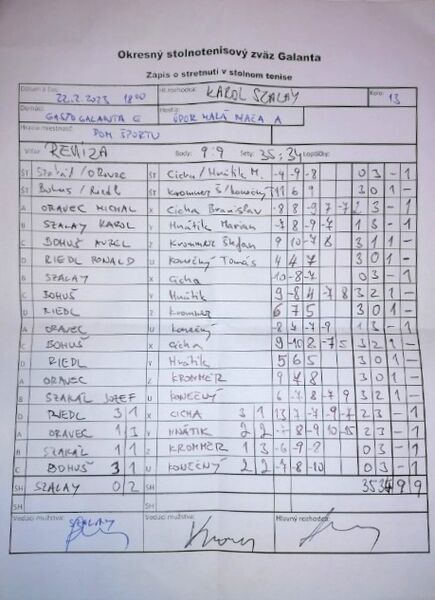 Okresný stolnotenisový zväz Galanta
Zápis o stretnutí v stolnom tenise
Dátum a čas: 22.2.2023 18:00 Hl. rozhodca: KAROL SZALAY Kolo: 13
Domáci: GASTOGALANTA E Hostia: ÚDOR MALÁ MAČA A
Hracia miestnosť: DOM ŠPORTU
Víťaz: REMIZA Body: 9:9 Sety: 35:34 Loptičky:
ŠT Szakál / ORAVEC ŠT Cicha / Hnátik M. -4 -9 -8 0 3 - 1
ŠT Bohuš / Riedl ŠT Krommer Š / Konečný T 11 6 9 3 0 1 -
A ORAVEC MICHAL X Cicha Branislav -8 8 -9 7 -7 2 3 - 1
B SZALAY KAROL Y Hnátik Marian -7 8 -9 -7 1 3 - 1
C BOHUŠ AUREL Z Krommer Štefan 9 10 -7 8 3 1 1 -
D RIEDL RONALD U Konečný Tomáš 4 4 7 3 0 1 -
B SZALAY X Cicha -10 -8 -7 0 3 - 1
C BOHUŠ Y Hnátik 9 -8 4 -7 8 3 2 1 -
RIEDL Z Krommer 6 7 5 3 0 1 -
A ORAVEC U Konečný -8 4 -7 -9 1 3 - 1
C BOHUŠ X Cicha 9 -10 8 -7 5 3 2 1 -
D RIEDL Y Hnátik 5 6 5 3 0 1 -
A ORAVEC Z KROMMER 9 4 8 3 0 1 -
B SZAKÁL JOZEF U KONEČNÝ 6 -7 8 -7 9 3 2 1 -
D RIEDL 3 1 X CICHA 3 1 13 7 -7 -9 -7 2 3 - 1
A ORAVEC 1 3 Y HNÁTIK 2 2 -7 8 -9 10 -15 2 3 - 1
B SZAKÁL 1 1 Z KROMMER 1 3 -6 -9 -8 0 3 - 1
C BOHUŠ 3 1 U KONEČNÝ 2 2 -7 -8 -10 0 3 - 1
SH SZALAY 0 2 SH 35 34 9 9
SH SH
Vedúci mužstva: SZALAY Vedúci mužstva: Hlavný rozhodca: